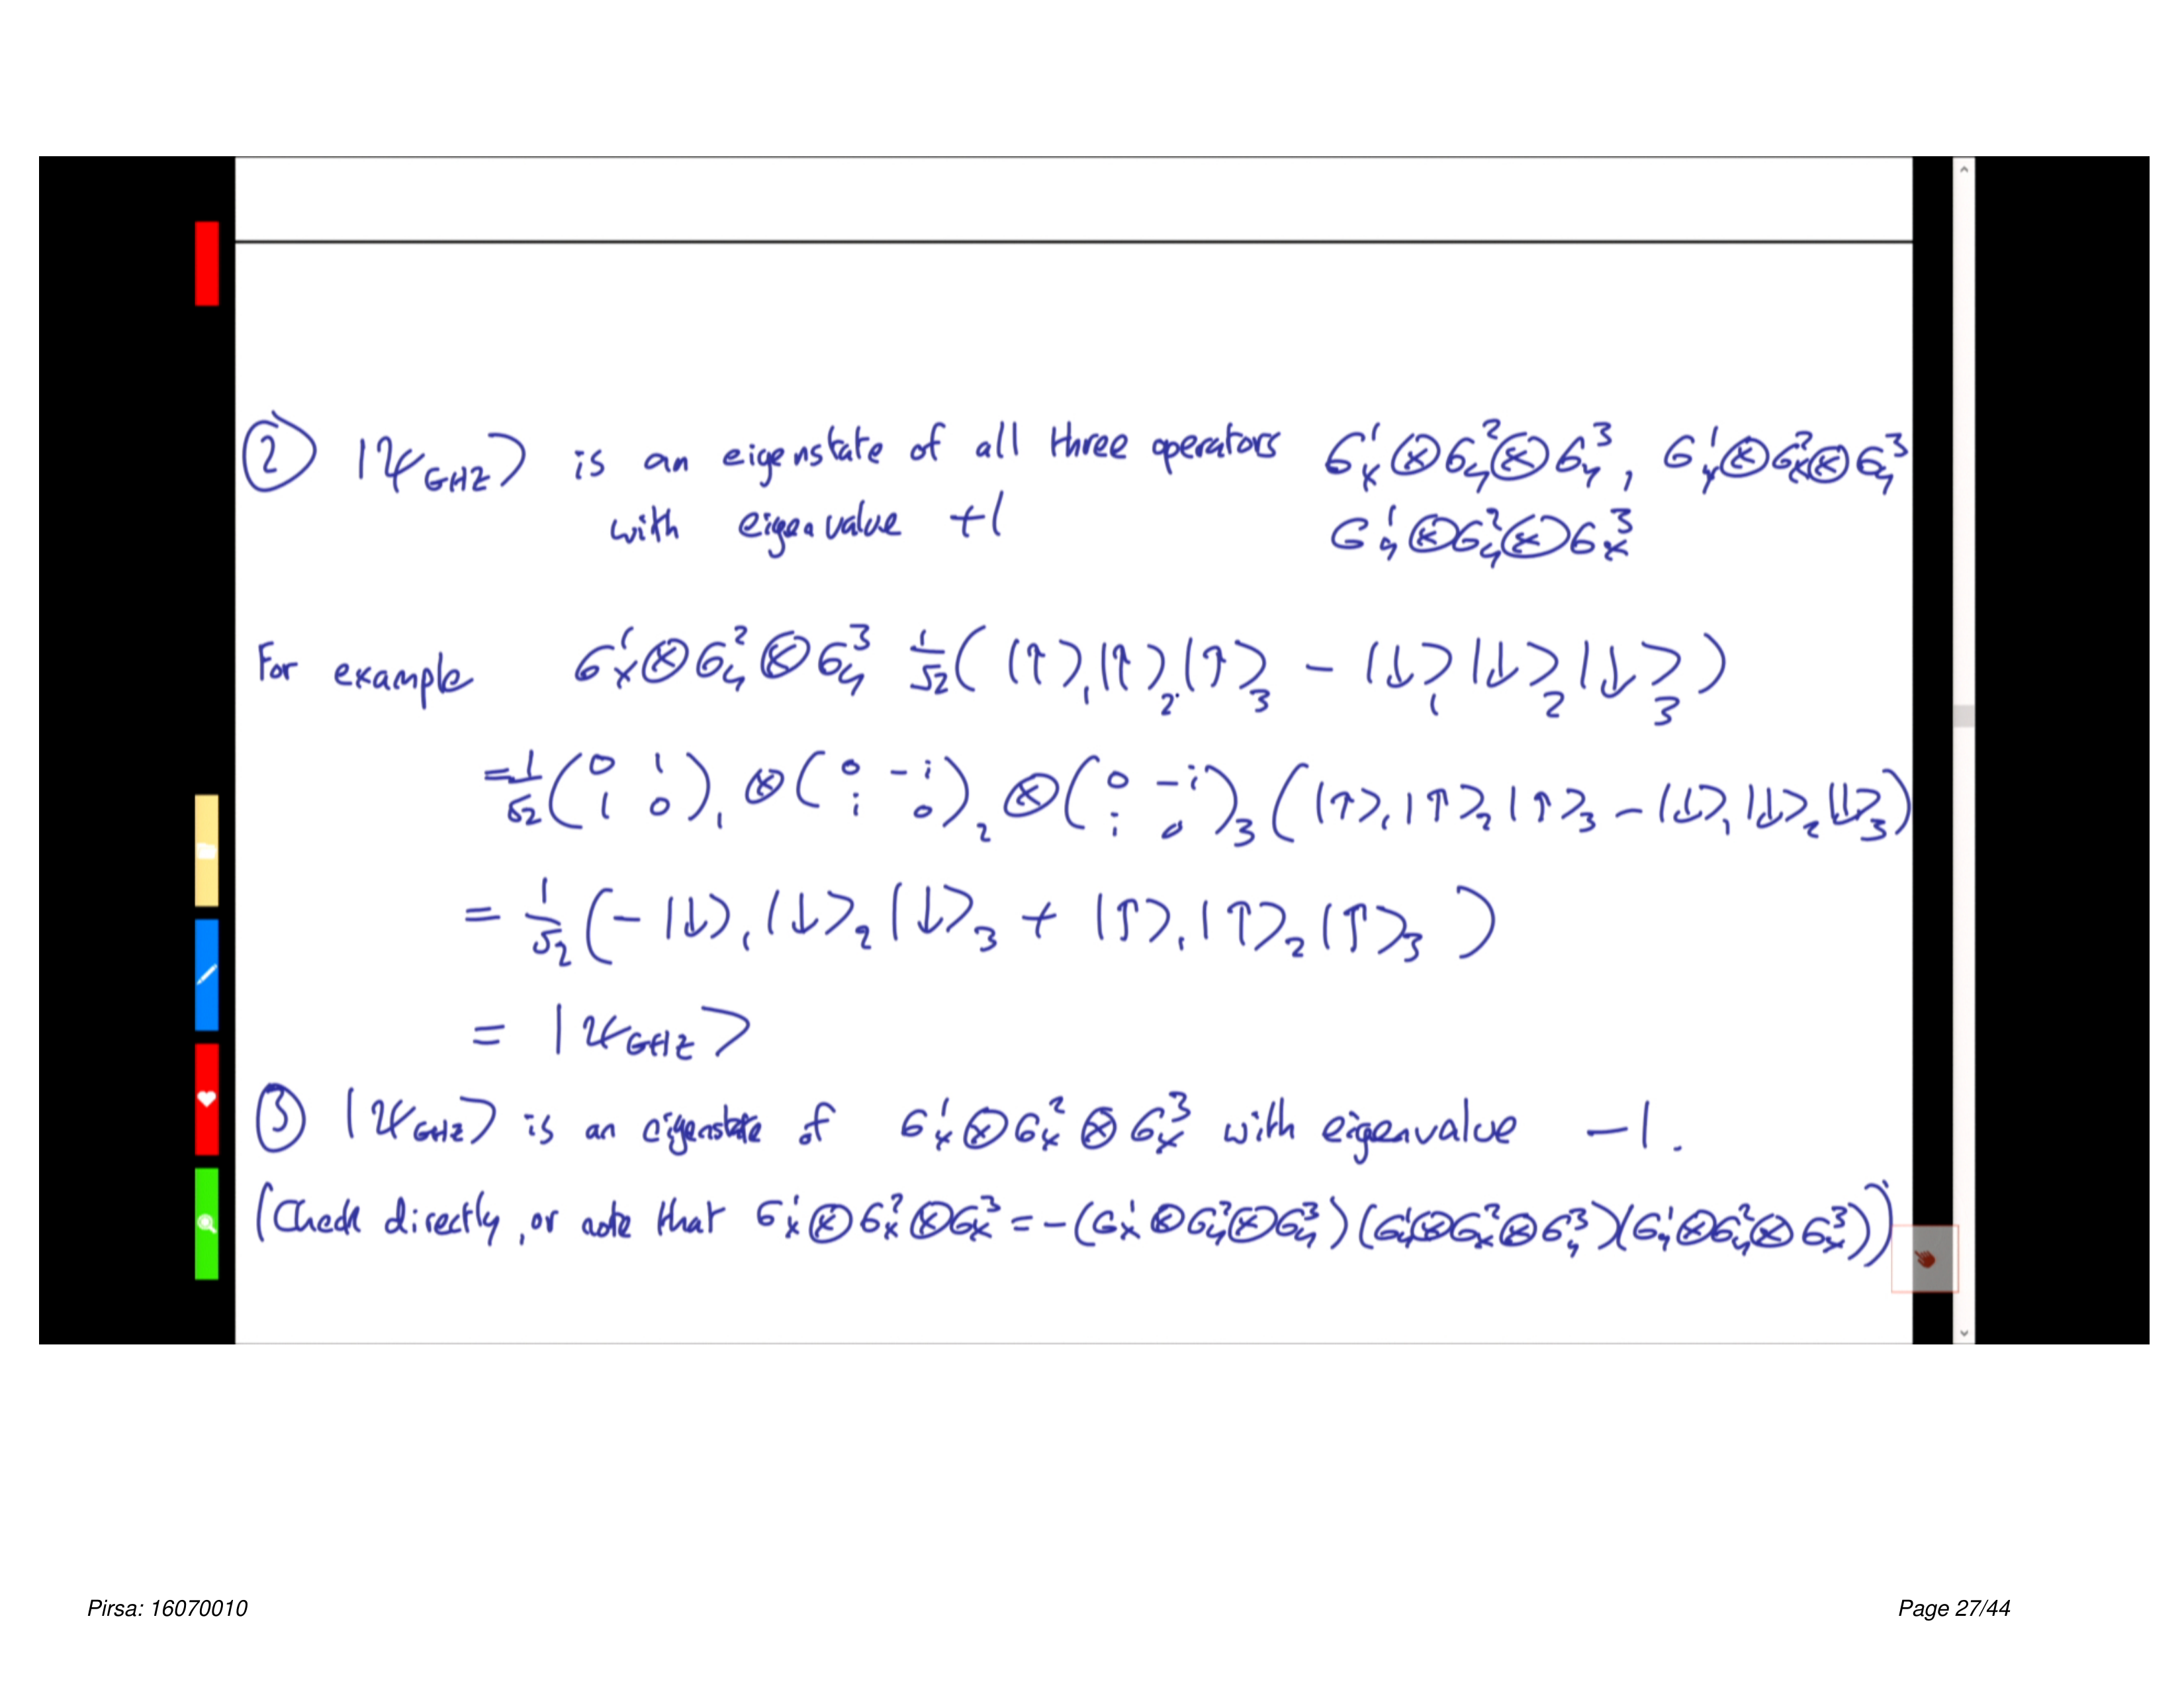 ② |ψ_GHZ⟩ is an eigenstate of all three operators σ_x^1⊗σ_y^2⊗σ_y^3, σ_y^1⊗σ_x^2⊗σ_y^3
with eigenvalue +1 σ_y^1⊗σ_y^2⊗σ_x^3
For example σ_x^1⊗σ_y^2⊗σ_y^3 1/√2 (|↑⟩_1|↑⟩_2|↑⟩_3 - |↓⟩_1|↓⟩_2|↓⟩_3)
= 1/√2 (0 1 / 1 0)_1 ⊗ (0 -i / i 0)_2 ⊗ (0 -i / i 0)_3 (|↑⟩_1|↑⟩_2|↑⟩_3 - |↓⟩_1|↓⟩_2|↓⟩_3)
= 1/√2 (-|↓⟩_1|↓⟩_2|↓⟩_3 + |↑⟩_1|↑⟩_2|↑⟩_3)
= |ψ_GHZ⟩
③ |ψ_GHZ⟩ is an eigenstate of σ_x^1⊗σ_x^2⊗σ_x^3 with eigenvalue -1.
(Check directly, or note that σ_x^1⊗σ_x^2⊗σ_x^3 = -(σ_x^1⊗σ_y^2⊗σ_y^3)(σ_y^1⊗σ_x^2⊗σ_y^3)(σ_y^1⊗σ_y^2⊗σ_x^3))
Pirsa: 16070010 Page 27/44